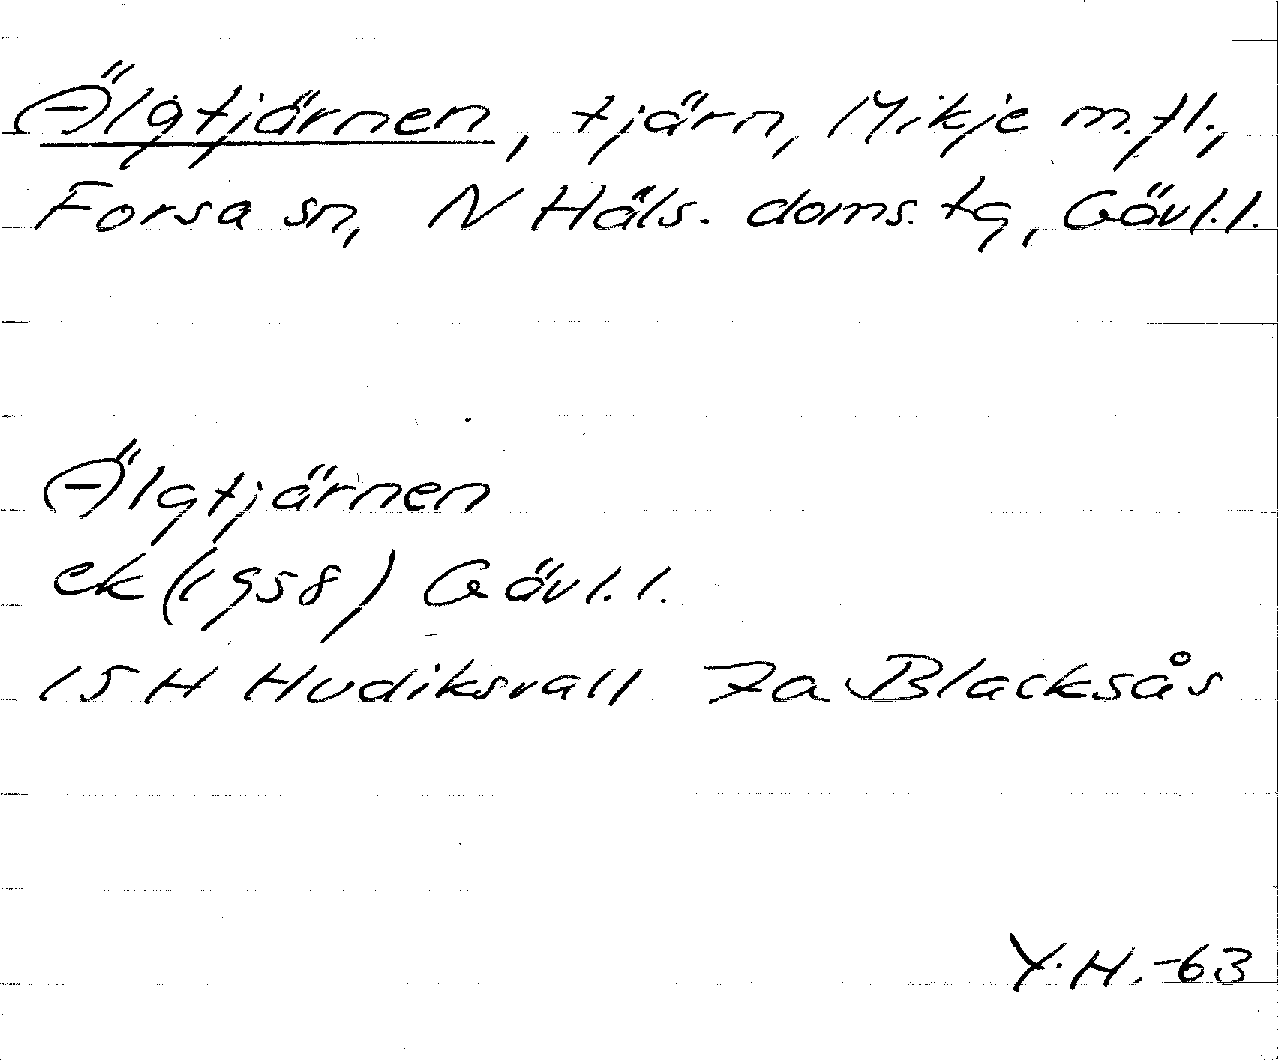 Älgtjärnen, tjärn, Mikje m.fl.,
Forsa sn, N Häls. doms. tg, Gävl.l.
Älgtjärnen
ek (1958) Gävl.l.
15 H Hudiksvall 7a Blacksås
Y.H.-63